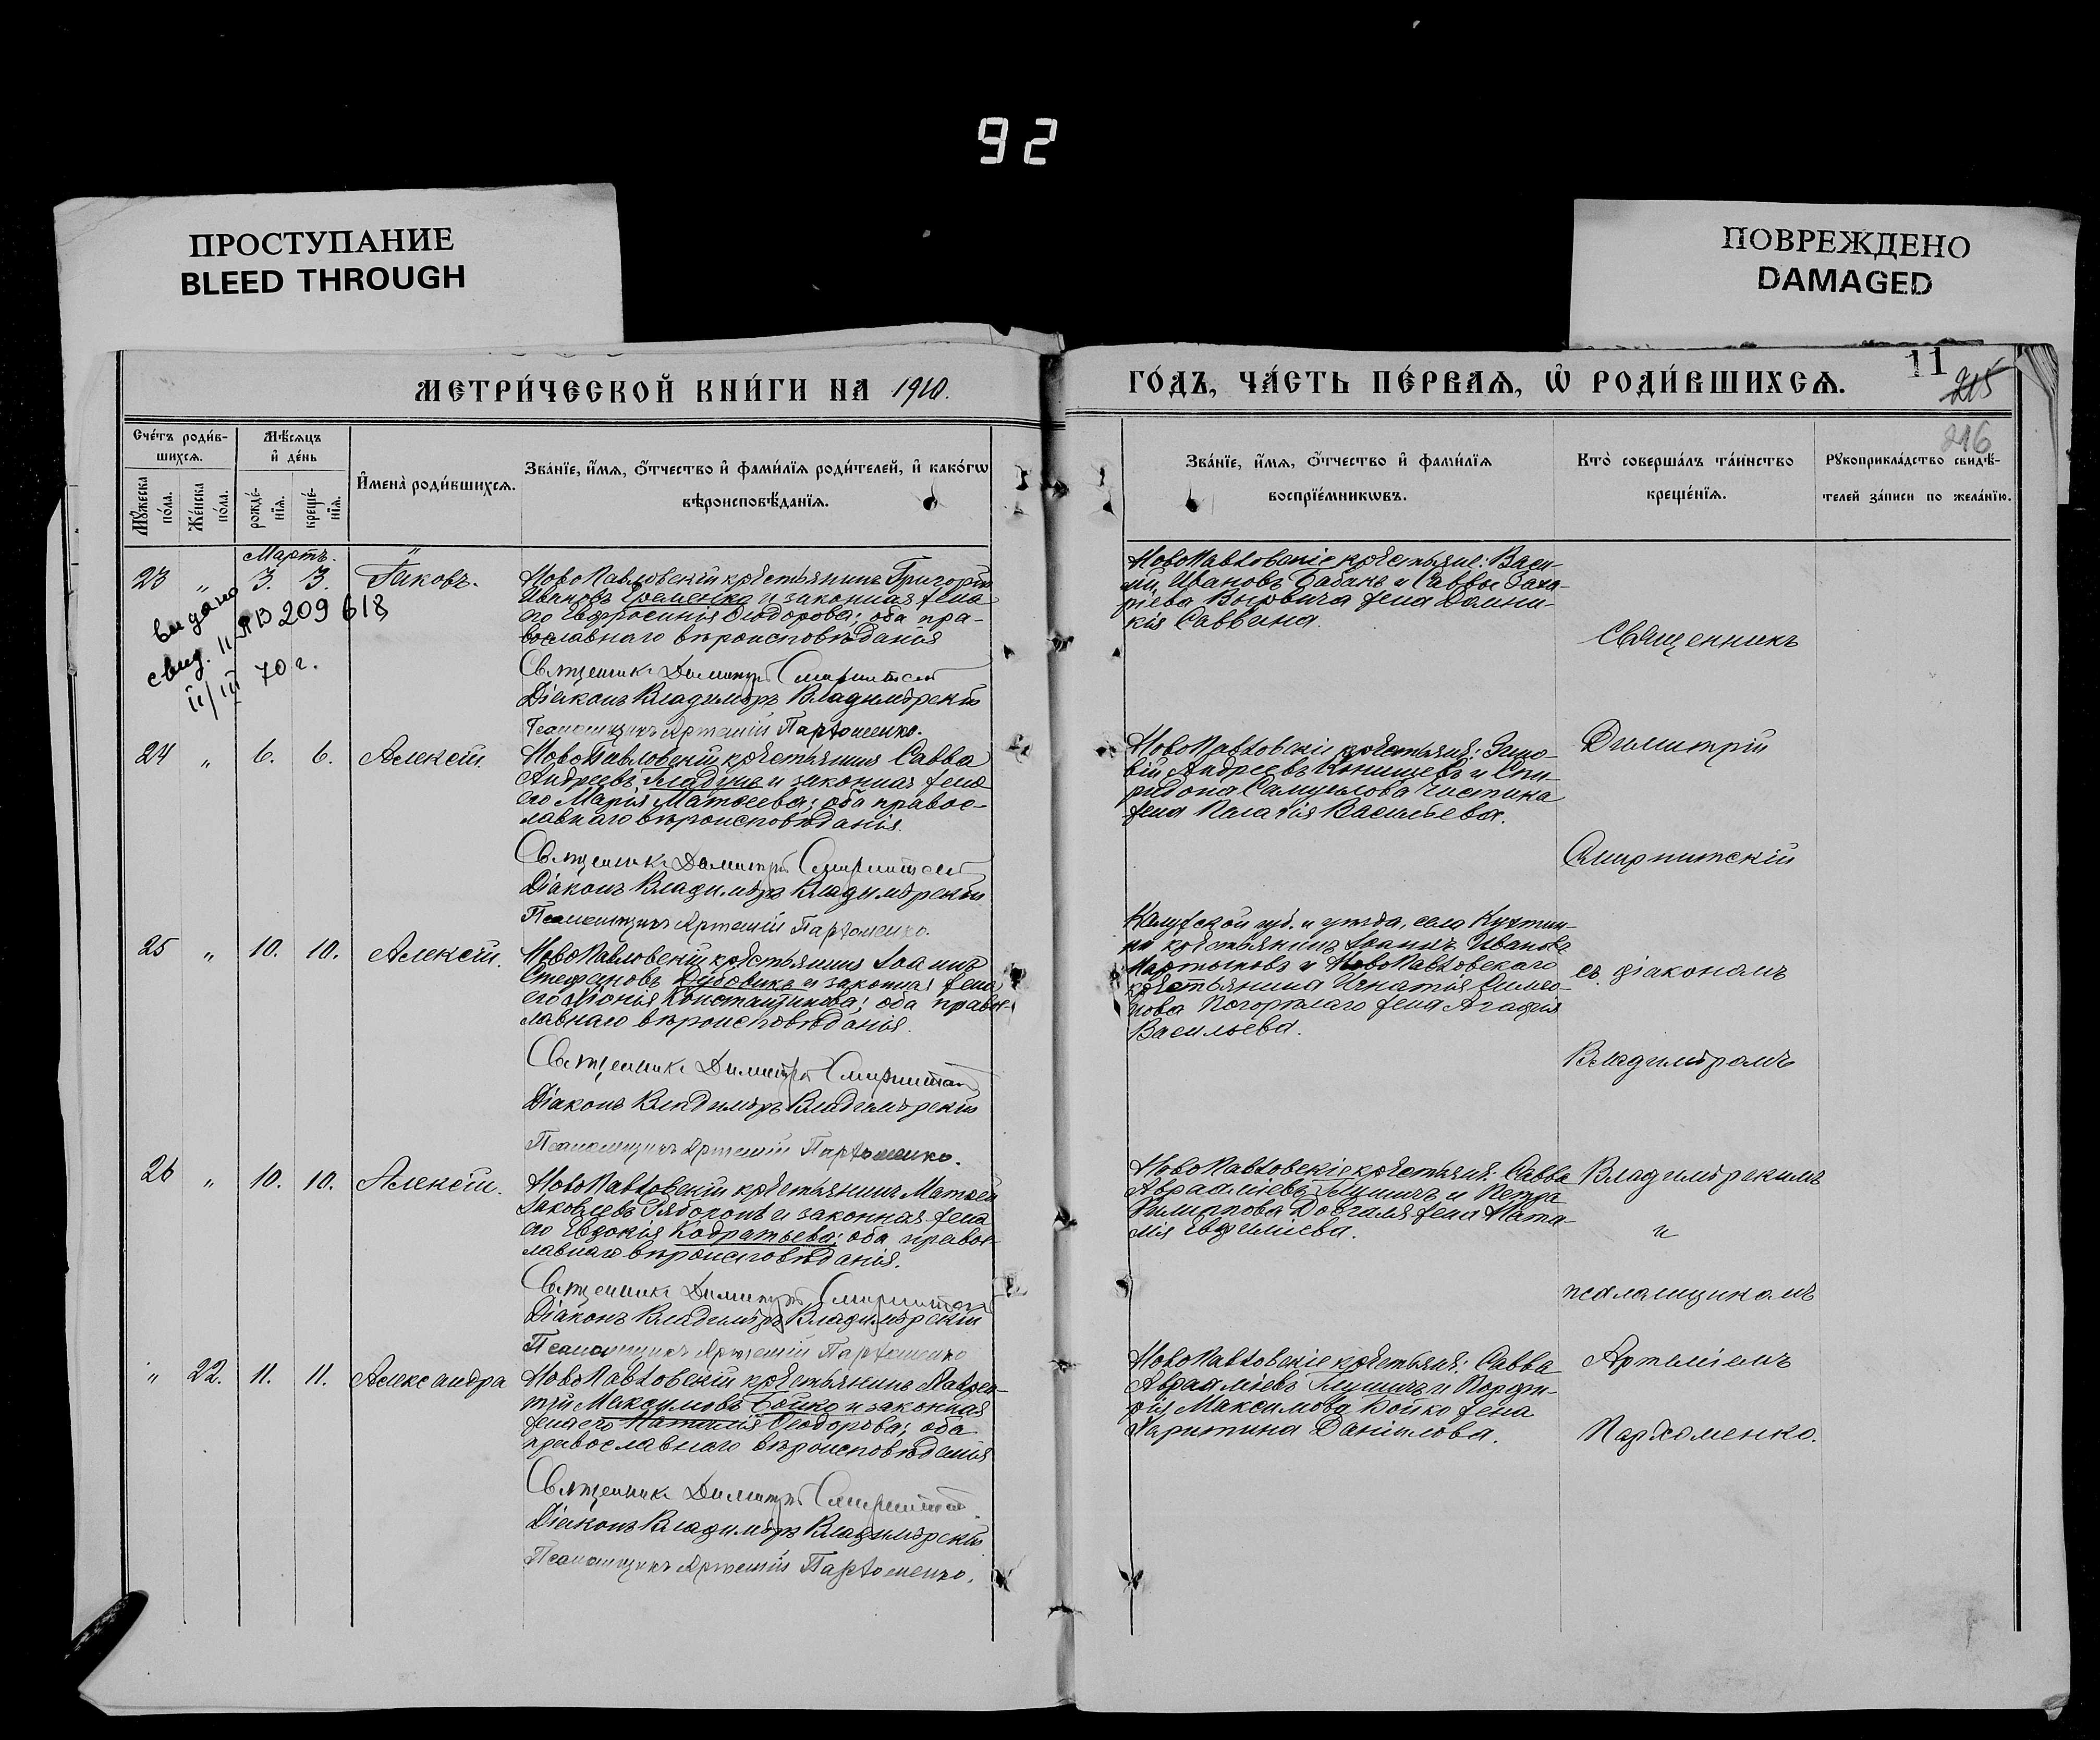 92
ПРОСТУПАНИЕ
BLEED THROUGH
ПОВРЕЖДЕНО
DAMAGED
МЕТРИ́ЧЕСКОЙ КНИ́ГИ НА 1910.
ГО́ДЪ, ЧА́СТЬ ПЕ́РВАѦ, Ѡ҆ РОДИ́ВШИХСѦ.
11
215
216
Сче́тъ роди́в-
шихсѧ.
Мѣ́сѧцъ
и҆ де́нь
Мꙋ́жеска
по́ла.
Же́нска
по́ла.
рожде́-
нїѧ.
креще́-
нїѧ.
И҆мена̀ роди́вшихсѧ.
Зва́нїе, и҆́мѧ, ѻ҆́тчество и҆ фами́лїѧ роди́телей, и҆ како́гѡ
вѣроисповѣ́данїѧ.
Зва́нїе, и҆́мѧ, ѻ҆́тчество и҆ фами́лїѧ
воспрїе́мникѡвъ.
Кто̀ соверша́лъ та́инство
креще́нїѧ.
Рꙋкоприкла́дство свидѣ́-
телей за́писи по жела́нїю.
Мартъ.
23 " 3. 3. Іаковъ.
НовоПавловскій крестьянинъ Григорій
Ивановъ Еременко и законная жена
его Евфросинія Ѳеодорова; оба пра-
вославнаго вѣроисповѣданія
Священникъ Димитрій Смирнитскій
Діаконъ Владиміръ Владимірскій
Псаломщикъ Артемій Пархоменко.
выдано
свид. II-ЯВ 209618
II/III 70 г.
НовоПавловскіе крестьяне: Васи-
лій Ивановъ Бабакъ и Саввы Заха-
ріева жена
кія Саввина.
24 " 6. 6. Алексѣй.
НовоПавловскій крестьянинъ Савва
Андреевъ Гладунъ и законная жена
его Марія Матѳеева; оба правос-
лавнаго вѣроисповѣданія.
Священникъ Димитрій Смирнитскій
Діаконъ Владиміръ Владимірскій
Псаломщикъ Артемій Пархоменко.
НовоПавловскіе крестьяне: Зино-
вій Андреевъ и Спи-
ридона Самуилова Чистика
жена Пелагія Васильева.
25 " 10. 10. Алексѣй.
НовоПавловскій крестьянинъ Іоаннъ
Стефановъ Дубовикъ и законная жена
его Константинова; оба правос-
лавнаго вѣроисповѣданія.
Священникъ Димитрій Смирнитскій
Діаконъ Владиміръ Владимірскій
Псаломщикъ Артемій Пархоменко.
Калужской губ. и уѣзда, села
крестьянинъ Іоаннъ Ивановъ
Мартыновъ и НовоПавловскаго
крестьянина Игнатія Симео-
нова Погорѣлаго жена Агафія
Васильева.
26 " 10. 10. Алексѣй.
НовоПавловскій крестьянинъ Матѳей
Іаковлевъ Рябоконь и законная жена
его Евдокія Кодратьева; оба правос-
лавнаго вѣроисповѣданія.
Священникъ Димитрій Смирнитскій
Діаконъ Владиміръ Владимірскій
Псаломщикъ Артемій Пархоменко
НовоПавловскіе крестьяне: Савва
Аврааміевъ Глушичъ и Петра
Филиппова Довгаля жена Ната-
лія Евфиміева.
" 22. 11. 11. Александра
НовоПавловскій крестьянинъ Лаврен-
тій Максимовъ Бойко и законная
жена его Наталія Ѳеодорова; оба
православнаго вѣроисповѣданія
Священникъ Димитрій Смирнитскій
Діаконъ Владиміръ Владимірскій
Псаломщикъ Артемій Пархоменко.
НовоПавловскіе крестьяне: Савва
Аврааміевъ Глушичъ и Порфи-
рія Максимова Бойко жена
Харитина Даніилова.
Священникъ
Димитрій
Смирнитскій
съ діакономъ
Владиміромъ
Владимірскимъ
и
псаломщикомъ
Артеміемъ
Пархоменко.